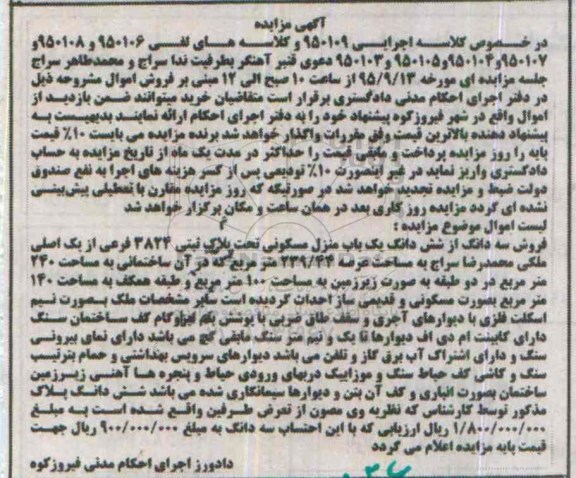 آگهی مزایده
در خصوص کلاسه اجرایی ۹۵۰۱۰۹ و کلاسه های لفی ۹۵۰۱۰۶ و ۹۵۰۱۰۸و
۹۵۰۱۰۷و۹۵۰۱۰۴و۹۵۰۱۰۵و ۹۵۰۱۰۳ دعوی قنبر آهنگر بطرفیت ندا سراج و محمدطاهر سراج
جلسه مزایده ای مورخه ۹۵/۹/۱۳ از ساعت ۱۰ صبح الی ۱۲ مبنی بر فروش اموال مشروحه ذیل
در دفتر اجرای احکام مدنی دادگستری برقرار است متقاضیان خرید میتوانند ضمن بازدید از
اموال واقع در شهر فیروزکوه پیشنهاد خود را به دفتر اجرای احکام ارائه نمایند بدیهیست به
پیشنهاد دهنده بالاترین قیمت وفق مقررات واگذار خواهد شد برنده مزایده می بایست ۱۰٪ قیمت
پایه را روز مزایده پرداخت و مابقی قیمت را حداکثر در مدت یک ماه از تاریخ مزایده به حساب
دادگستری واریز نماید در غیر اینصورت ۱۰٪ تودیعی پس از کسر هزینه های اجرا به نفع صندوق
دولت ضبط و مزایده تجدید خواهد شد در صورتیکه که روز مزایده مقارن با تعطیلی پیش‌بینی
نشده ای گردد مزایده روز کاری بعد در همان ساعت و مکان برگزار خواهد شد
لیست اموال موضوع مزایده :
فروش سه دانگ از شش دانگ یک باب منزل مسکونی تحت پلاک ثبتی ۳۸۲۴ فرعی از یک اصلی
ملکی محمدرضا سراج به مساحت عرصه ۲۳۹/۴۴ متر مربع که در آن ساختمانی به مساحت ۲۴۰
متر مربع در دو طبقه به صورت زیرزمین به مساحت ۱۰۰ متر مربع و طبقه همکف به مساحت ۱۴۰
متر مربع بصورت مسکونی و قدیمی ساز احداث گردیده است سایر مشخصات ملک بصورت نیم
اسکلت فلزی با دیوارهای آجری و سقف طاق ضربی با پوشش بام ایزوگام کف ساختمان سنگ
دارای کابینت ام دی اف دیوارها تا یک و نیم متر سنگ مابقی گچ می باشد دارای نمای بیرونی
سنگ و دارای اشتراک آب برق گاز و تلفن می باشد دیوارهای سرویس بهداشتی و حمام بترتیب
سنگ و کاشی کف حیاط سنگ و موزاییک دربهای ورودی حیاط و پنجره ها آهنی زیرزمین
ساختمان بصورت انباری و کف آن بتن و دیوارها سیمانکاری شده می باشد شش دانگ پلاک
مذکور توسط کارشناس که نظریه وی مصون از تعرض طرفین واقع شده است به مبلغ
۱/۸۰۰/۰۰۰/۰۰۰ ریال ارزیابی که با این احتساب سه دانگ به مبلغ ۹۰۰/۰۰۰/۰۰۰ ریال جهت
قیمت پایه مزایده اعلام می گردد
دادورز اجرای احکام مدنی فیروزکوه